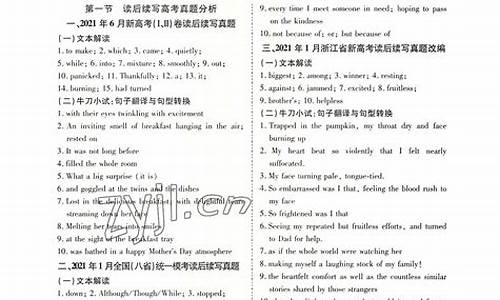 第一节 读后续写高考真题分析
一、2021 年 6 月新高考(Ⅰ,Ⅱ)卷读后续写真题
(一)文本解读
1. to make; 2. which; 3. came; 4. quietly;
5. while; 6. into; 7. mixture; 8. smoothly; 9. out;
10. panicked; 11. Thankfully; 12. a; 13. it;
14. burning; 15. had turned
(二)牛刀小试:句子翻译与句型转换
1. with their eyes twinkling with excitement
2. An inviting smell of breakfast hanging in the air; rested on
3. It was not long before
4. filled the whole room
5. What a big surprise (it is)
6. and goggled at the twins and the dishes
7. Lost in the delicious breakfast, with delightful tears streaming down her face
8. Melting her tears into smiles
9. at the sight of the breakfast tray
10. was bathed in a happy Mother's Day atmosphere
二、2021 年 1 月全国(八省)统一模考读后续写真题
(一)文本解读
1. down; 2. Although/Though/While; 3. stopped;
9. every time I meet someone in need; hoping to pass on the kindness
10. not because of; or; but because of
三、2021 年 1 月浙江省新高考读后续写真题改编
(一)文本解读
1. biggest; 2. among; 3. winner; 4. resting;
5. against; 6. jammed; 7. excited; 8. fruitless;
9. brother's; 10. helpless
(二)牛刀小试:句子翻译与句型转换
1. Trapped in the pumpkin, my throat dry and face burning up
2. My heart beat so violently that I felt nearly suffocated.
3. My face turning pale, tongue-tied.
4. So embarrassed was I that, feeling the blood rush to my face
5. So frightened was I that
6. Seeing my repeated but fruitless efforts, and turned to Dad for help.
7. as if the whole world were watching her
8. making myself a laughing stock of my family!
9. the heartfelt comfort as well as the countless similar stories shared by those strangers